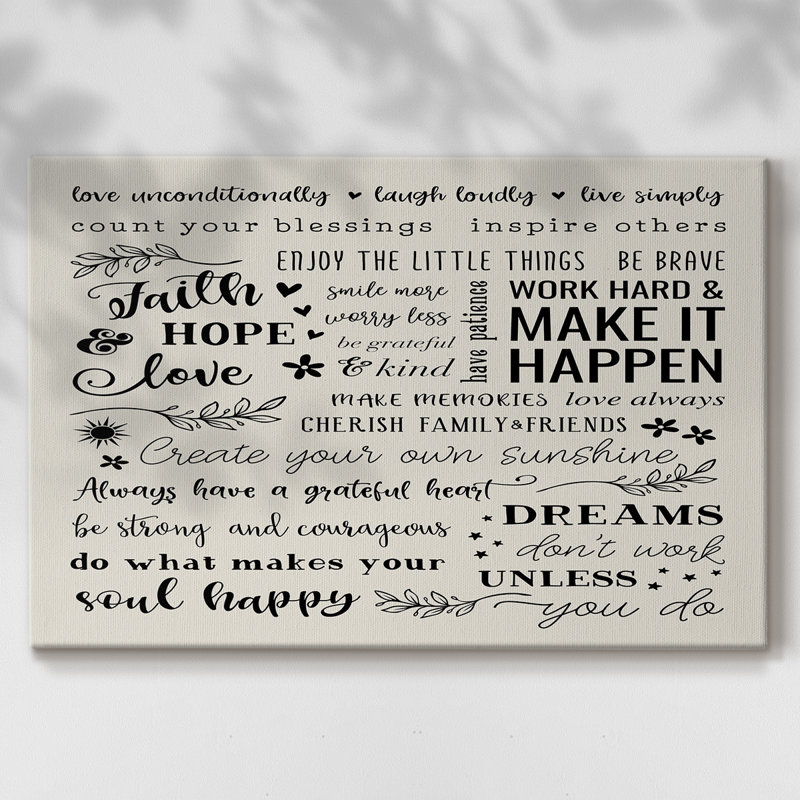 love unconditionally laugh loudly live simply
count your blessings inspire others
ENJOY THE LITTLE THINGS BE BRAVE
Faith
& HOPE
love
smile more
worry less
be grateful
& kind
have patience
WORK HARD &
MAKE IT
HAPPEN
MAKE MEMORIES love always
CHERISH FAMILY & FRIENDS
Create your own sunshine
Always have a grateful heart
be strong and courageous
do what makes your
soul happy
DREAMS
don't work
UNLESS
you do